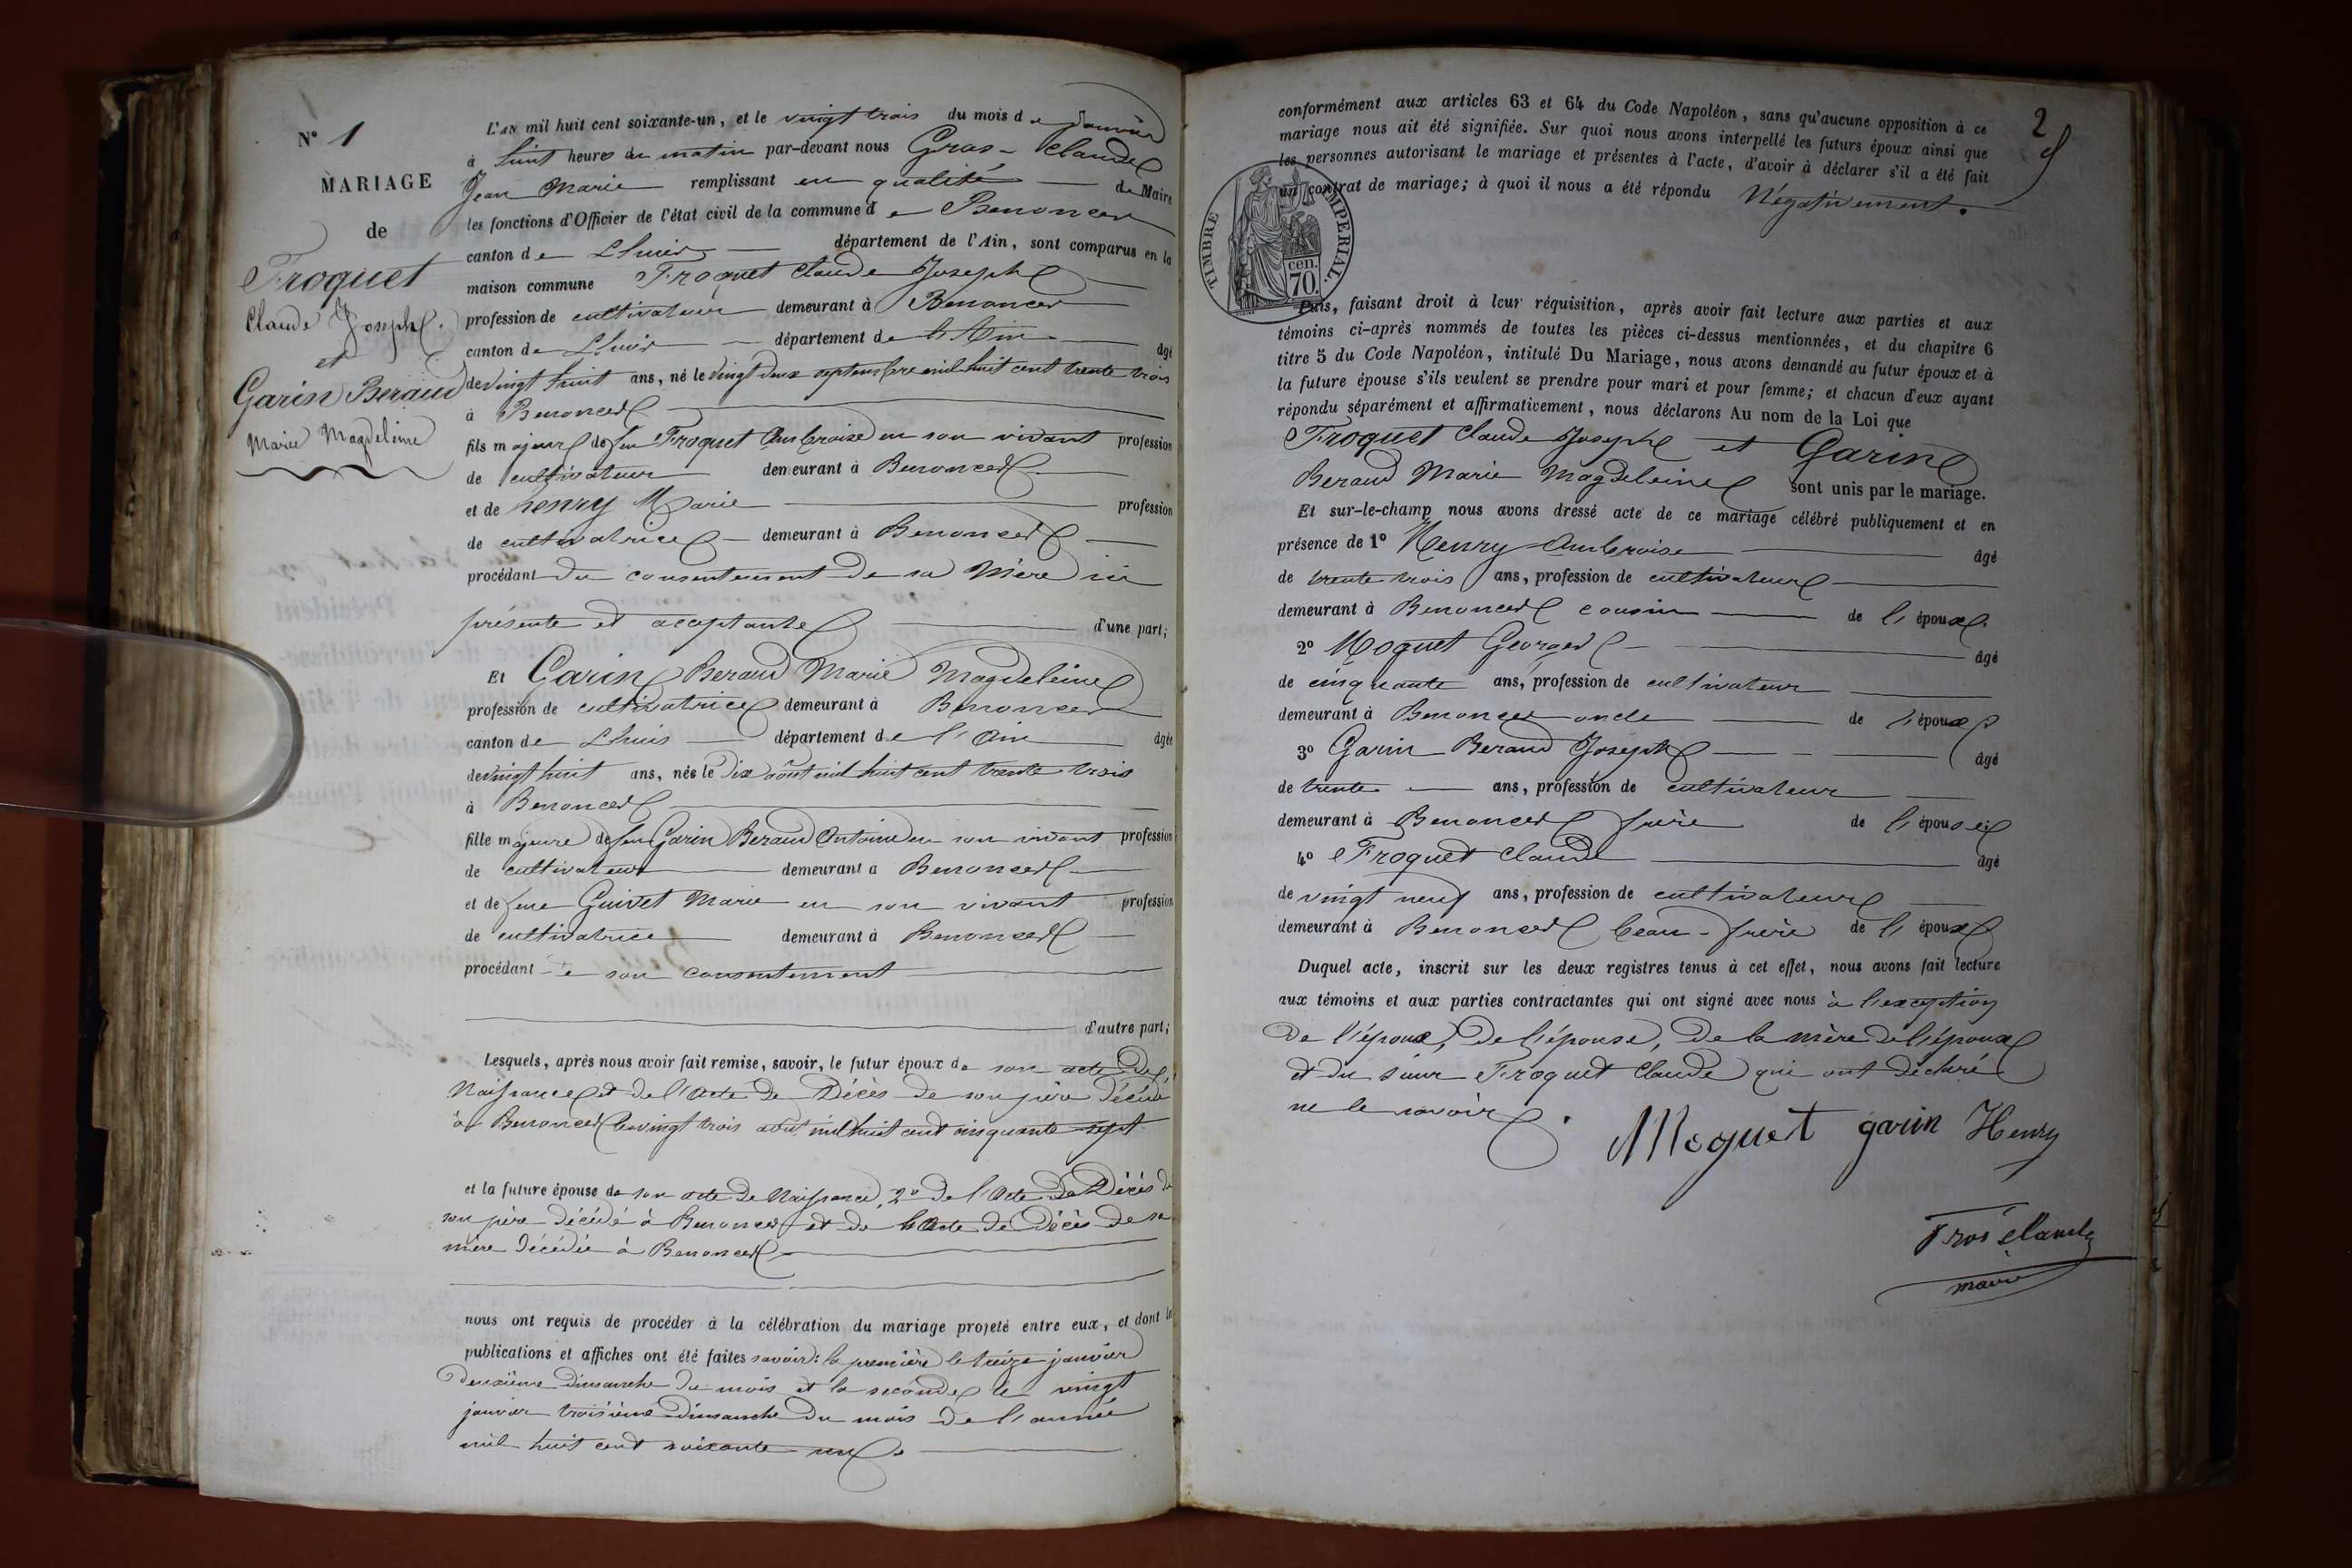 N° 1
MARIAGE
de
Froquet
Claude Joseph.
et
Garin Beraud
Marie Magdeleine
L'AN mil huit cent soixante-un, et le vingt trois du mois de Janvier
à huit heures du matin par-devant nous Gras-Claude
Jean Marie remplissant en qualité de Maire
les fonctions d'Officier de l'état civil de la commune de Benonces
canton de Lhuis département de l'Ain, sont comparus en la
maison commune Froquet Claude Joseph
profession de cultivateur demeurant à Benonces
canton de Lhuis département de l'Ain âgé
de vingt huit ans, né le vingt deux septembre mil huit cent trente trois
à Benonces
fils majeur de feu Froquet Ambroise en son vivant profession
de cultivateur demeurant à Benonces
et de henry Marie profession
de cultivatrice demeurant à Benonces
procédant du consentement de sa Mère ici
présente et acceptante d'une part;
Et Garin Beraud Marie Magdeleine
profession de cultivatrice demeurant à Benonces
canton de Lhuis département de l'Ain âgée
de vingt huit ans, née le Dix août mil huit cent trente trois
à Benonces
fille majeure de feu Garin Beraud Antoine en son vivant profession
de cultivateur demeurant à Benonces
et de feue Guivet Marie en son vivant profession
de cultivatrice demeurant à Benonces
procédant de son consentement
d'autre part;
Lesquels, après nous avoir fait remise, savoir, le futur époux de son acte de
Naissance et de l'acte de Décès de son père décédé
à Benonces le vingt trois août mil huit cent cinquante sept
et la future épouse de son acte de Naissance, 2° de l'Acte de Décès de
son père décédé à Benonces et de l'Acte de Décès de sa
mère décédée à Benonces
nous ont requis de procéder à la célébration du mariage projeté entre eux, et dont les
publications et affiches ont été faites savoir: la première le treize janvier
deuxième dimanche du mois et la seconde le vingt
janvier troisième dimanche du mois de l'année
mil huit cent soixante un.
2
conformément aux articles 63 et 64 du Code Napoléon, sans qu'aucune opposition à ce
mariage nous ait été signifiée. Sur quoi nous avons interpellé les futurs époux ainsi que
les personnes autorisant le mariage et présentes à l'acte, d'avoir à déclarer s'il a été fait
un contrat de mariage; à quoi il nous a été répondu Négativement.
TIMBRE IMPERIAL.
70.
cen.
Puis, faisant droit à leur réquisition, après avoir fait lecture aux parties et aux
témoins ci-après nommés de toutes les pièces ci-dessus mentionnées, et du chapitre 6
titre 5 du Code Napoléon, intitulé Du Mariage, nous avons demandé au futur époux et à
la future épouse s'ils veulent se prendre pour mari et pour femme; et chacun d'eux ayant
répondu séparément et affirmativement, nous déclarons Au nom de la Loi que
Froquet Claude Joseph et Garin
Beraud Marie Magdeleine sont unis par le mariage.
Et sur-le-champ nous avons dressé acte de ce mariage célébré publiquement et en
présence de 1° Henry Ambroise âgé
de trente trois ans, profession de cultivateur
demeurant à Benonces cousin de l'époux
2° Moquet Georges âgé
de cinquante ans, profession de cultivateur
demeurant à Benonces oncle de l'époux
3° Garin Beraud Joseph âgé
de trente ans, profession de cultivateur
demeurant à Benonces frère de l'épouse
4° Froquet Claude âgé
de vingt neuf ans, profession de cultivateur
demeurant à Benonces beau-frère de l'époux
Duquel acte, inscrit sur les deux registres tenus à cet effet, nous avons fait lecture
aux témoins et aux parties contractantes qui ont signé avec nous à l'exception
de l'époux, de l'épouse, de la mère de l'époux
et du sieur Froquet Claude qui ont déclaré
ne le savoir.
Moquet garin Henry